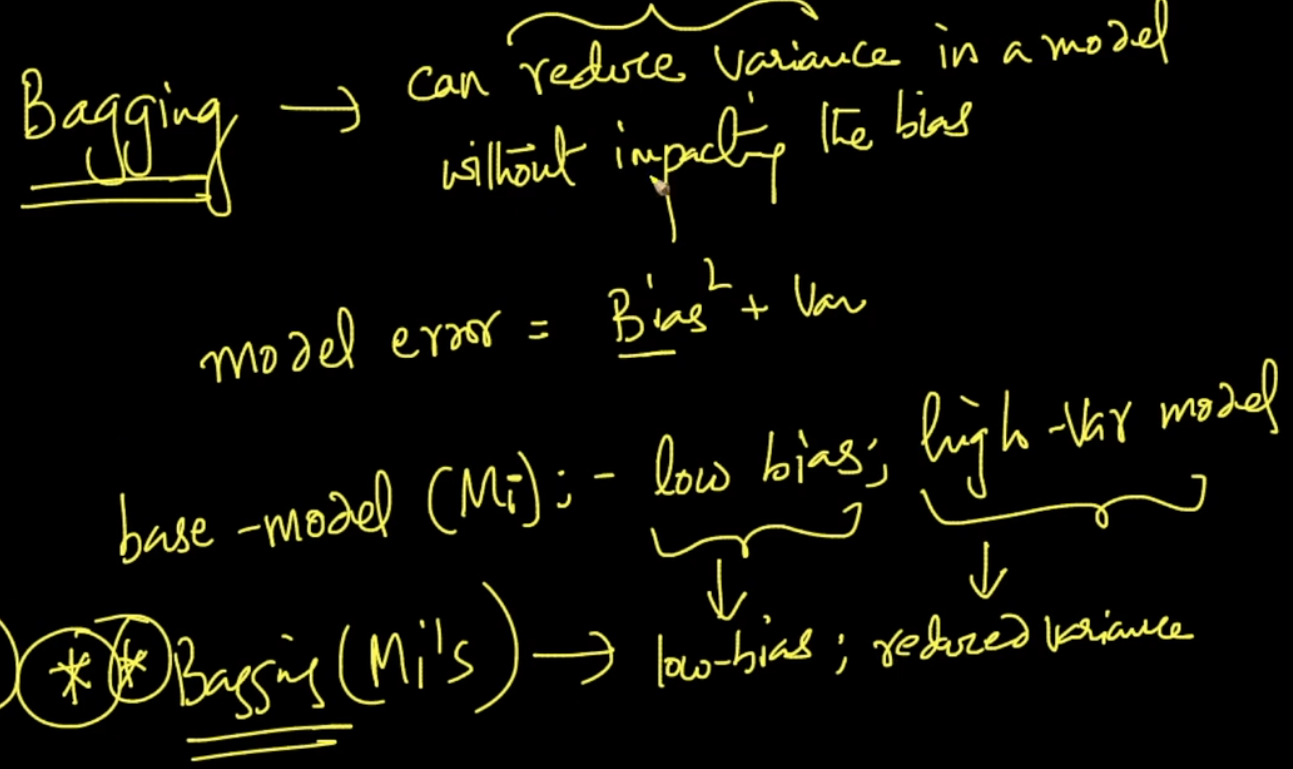 Bagging → can reduce variance in a model
without impacting the bias
model error = Bias² + Var
base-model (Mi) :- low bias; high-Var model
** Bagging (Mi's) → low-bias ; reduced variance